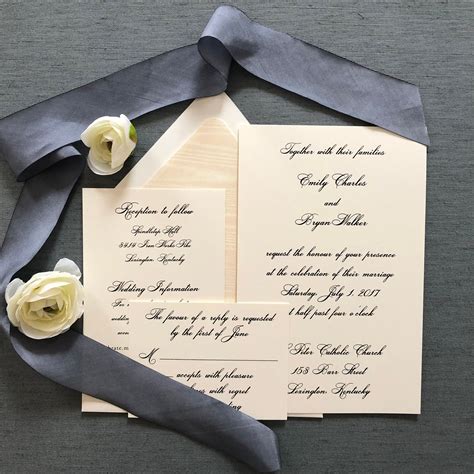 Together with their families
Emily Charles
and
Bryan Walker
request the honour of your presence
at the celebration of their marriage
Saturday, July 1, 2017
at half past four o'clock
Peter Catholic Church
153 Barr Street
Lexington, Kentucky
Reception to follow
Spindletop Hall
3414 Iron Works Pike
Lexington, Kentucky
Wedding Information
The favour of a reply is requested
by the first of June
M
accepts with pleasure
with regret